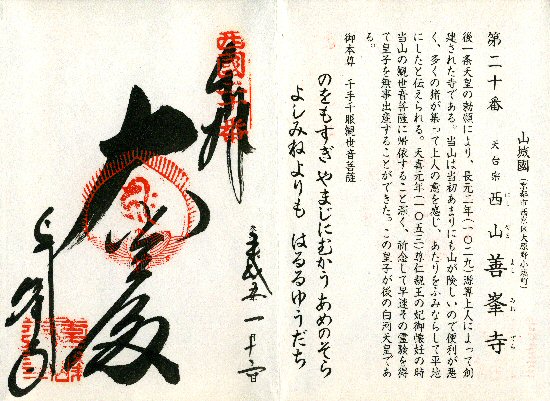 第二十番
山城國(京都市西京区大原野小塩町)
天台宗 西山 善峯寺
にし やま よし みね でら
後一条天皇の勅願により、長元二年(一〇二九)源算上人によって創
建された寺である。当山は当初あまりにも山が険しいので便利が悪
く、多くの猪が集って上人の意を感じ、あたりをふみならして平地
にしたと伝えられる。天喜元年(一〇五三)尊仁親王の妃御懐妊の時
当山の観世音菩薩に帰依すること深く、祈念して早速その霊験を得
て皇子を無事出産することができた。この皇子が後の白河天皇であ
る。
御本尊 千手千眼観世音菩薩
のをもすぎ やまじにむかう あめのそら
よしみねよりも はるるゆうだち
奉拝
西國二十番
大悲金剛